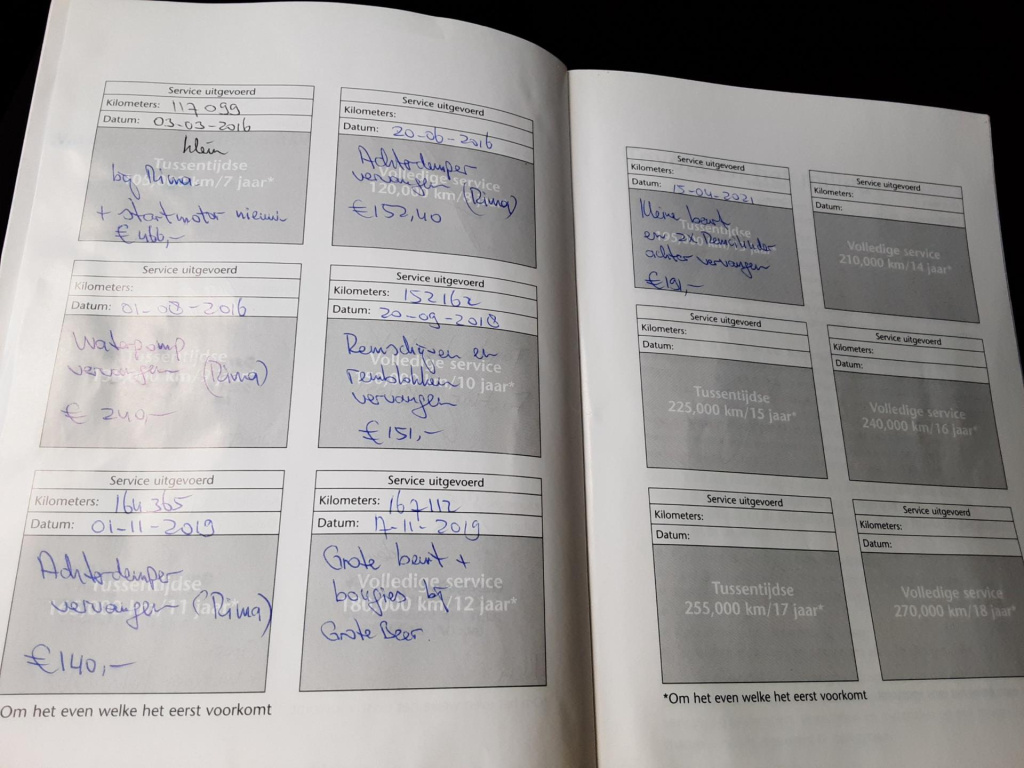 Service uitgevoerd
Kilometers: 117 099
Datum: 03-03-2016
klein
Tussentijdse
km/7 jaar*
bij Rima
+ startmotor nieuw
€ 466,-
Service uitgevoerd
Kilometers:
Datum: 20-06-2016
Achterdemper
Volledige service
vervangen (Rima)
120,000 km/
€152,40
Service uitgevoerd
Kilometers:
Datum: 01-08-2016
Waterpomp
Tussentijdse
vervangen (Rima)
€ 240,-
Service uitgevoerd
Kilometers: 152162
Datum: 20-09-2018
Remschijven en
Volledige service
remblokken
10 jaar*
vervangen
€151,-
Service uitgevoerd
Kilometers: 164 365
Datum: 01-11-2019
Achterdemper
Tussentijdse
vervangen (Rima)
€140,-
Service uitgevoerd
Kilometers: 167112
Datum: 17-11-2019
Grote beurt +
Volledige service
bougies bij
180,000 km/12 jaar*
Grote Beer.
Om het even welke het eerst voorkomt
Service uitgevoerd
Kilometers:
Datum: 15-04-2021
Kleine beurt
Tussentijdse
en 2x Remcilinder
achter vervangen
€191,-
Service uitgevoerd
Kilometers:
Datum:
Volledige service
210,000 km/14 jaar*
Service uitgevoerd
Kilometers:
Datum:
Tussentijdse
225,000 km/15 jaar*
Service uitgevoerd
Kilometers:
Datum:
Volledige service
240,000 km/16 jaar*
Service uitgevoerd
Kilometers:
Datum:
Tussentijdse
255,000 km/17 jaar*
Service uitgevoerd
Kilometers:
Datum:
Volledige service
270,000 km/18 jaar*
*Om het even welke het eerst voorkomt